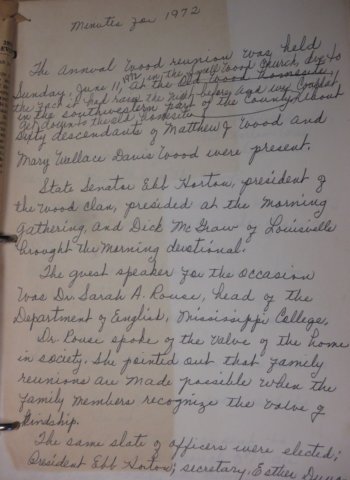 Minutes for 1972
The Annual Wood reunion was held
Sunday, June 11, 1972, in the Wood Church, due to
the fact it had rained the night before and we couldn't
get down to the old homesite, at the Old Wood Homeside,
in the southwestern part of the county. About
sixty descendants of Matthew J Wood and
Mary Wallace Davis Wood were present.
State Senator Ebb Horton, president of
the Wood clan, presided at the Morning
Gathering, and Dick McGraw of Louisville
brought the Morning devotional.
The guest speaker for the occasion
was Dr. Sarah A. Rouse, head of the
Department of English, Mississippi College.
Dr. Rouse spoke of the Valve of the home
in society. She pointed out that family
reunions are made possible when the
family members recognize the Valve of
Kindship.
The same slate of officers were elected;
President Ebb Horton; secretary, Esther